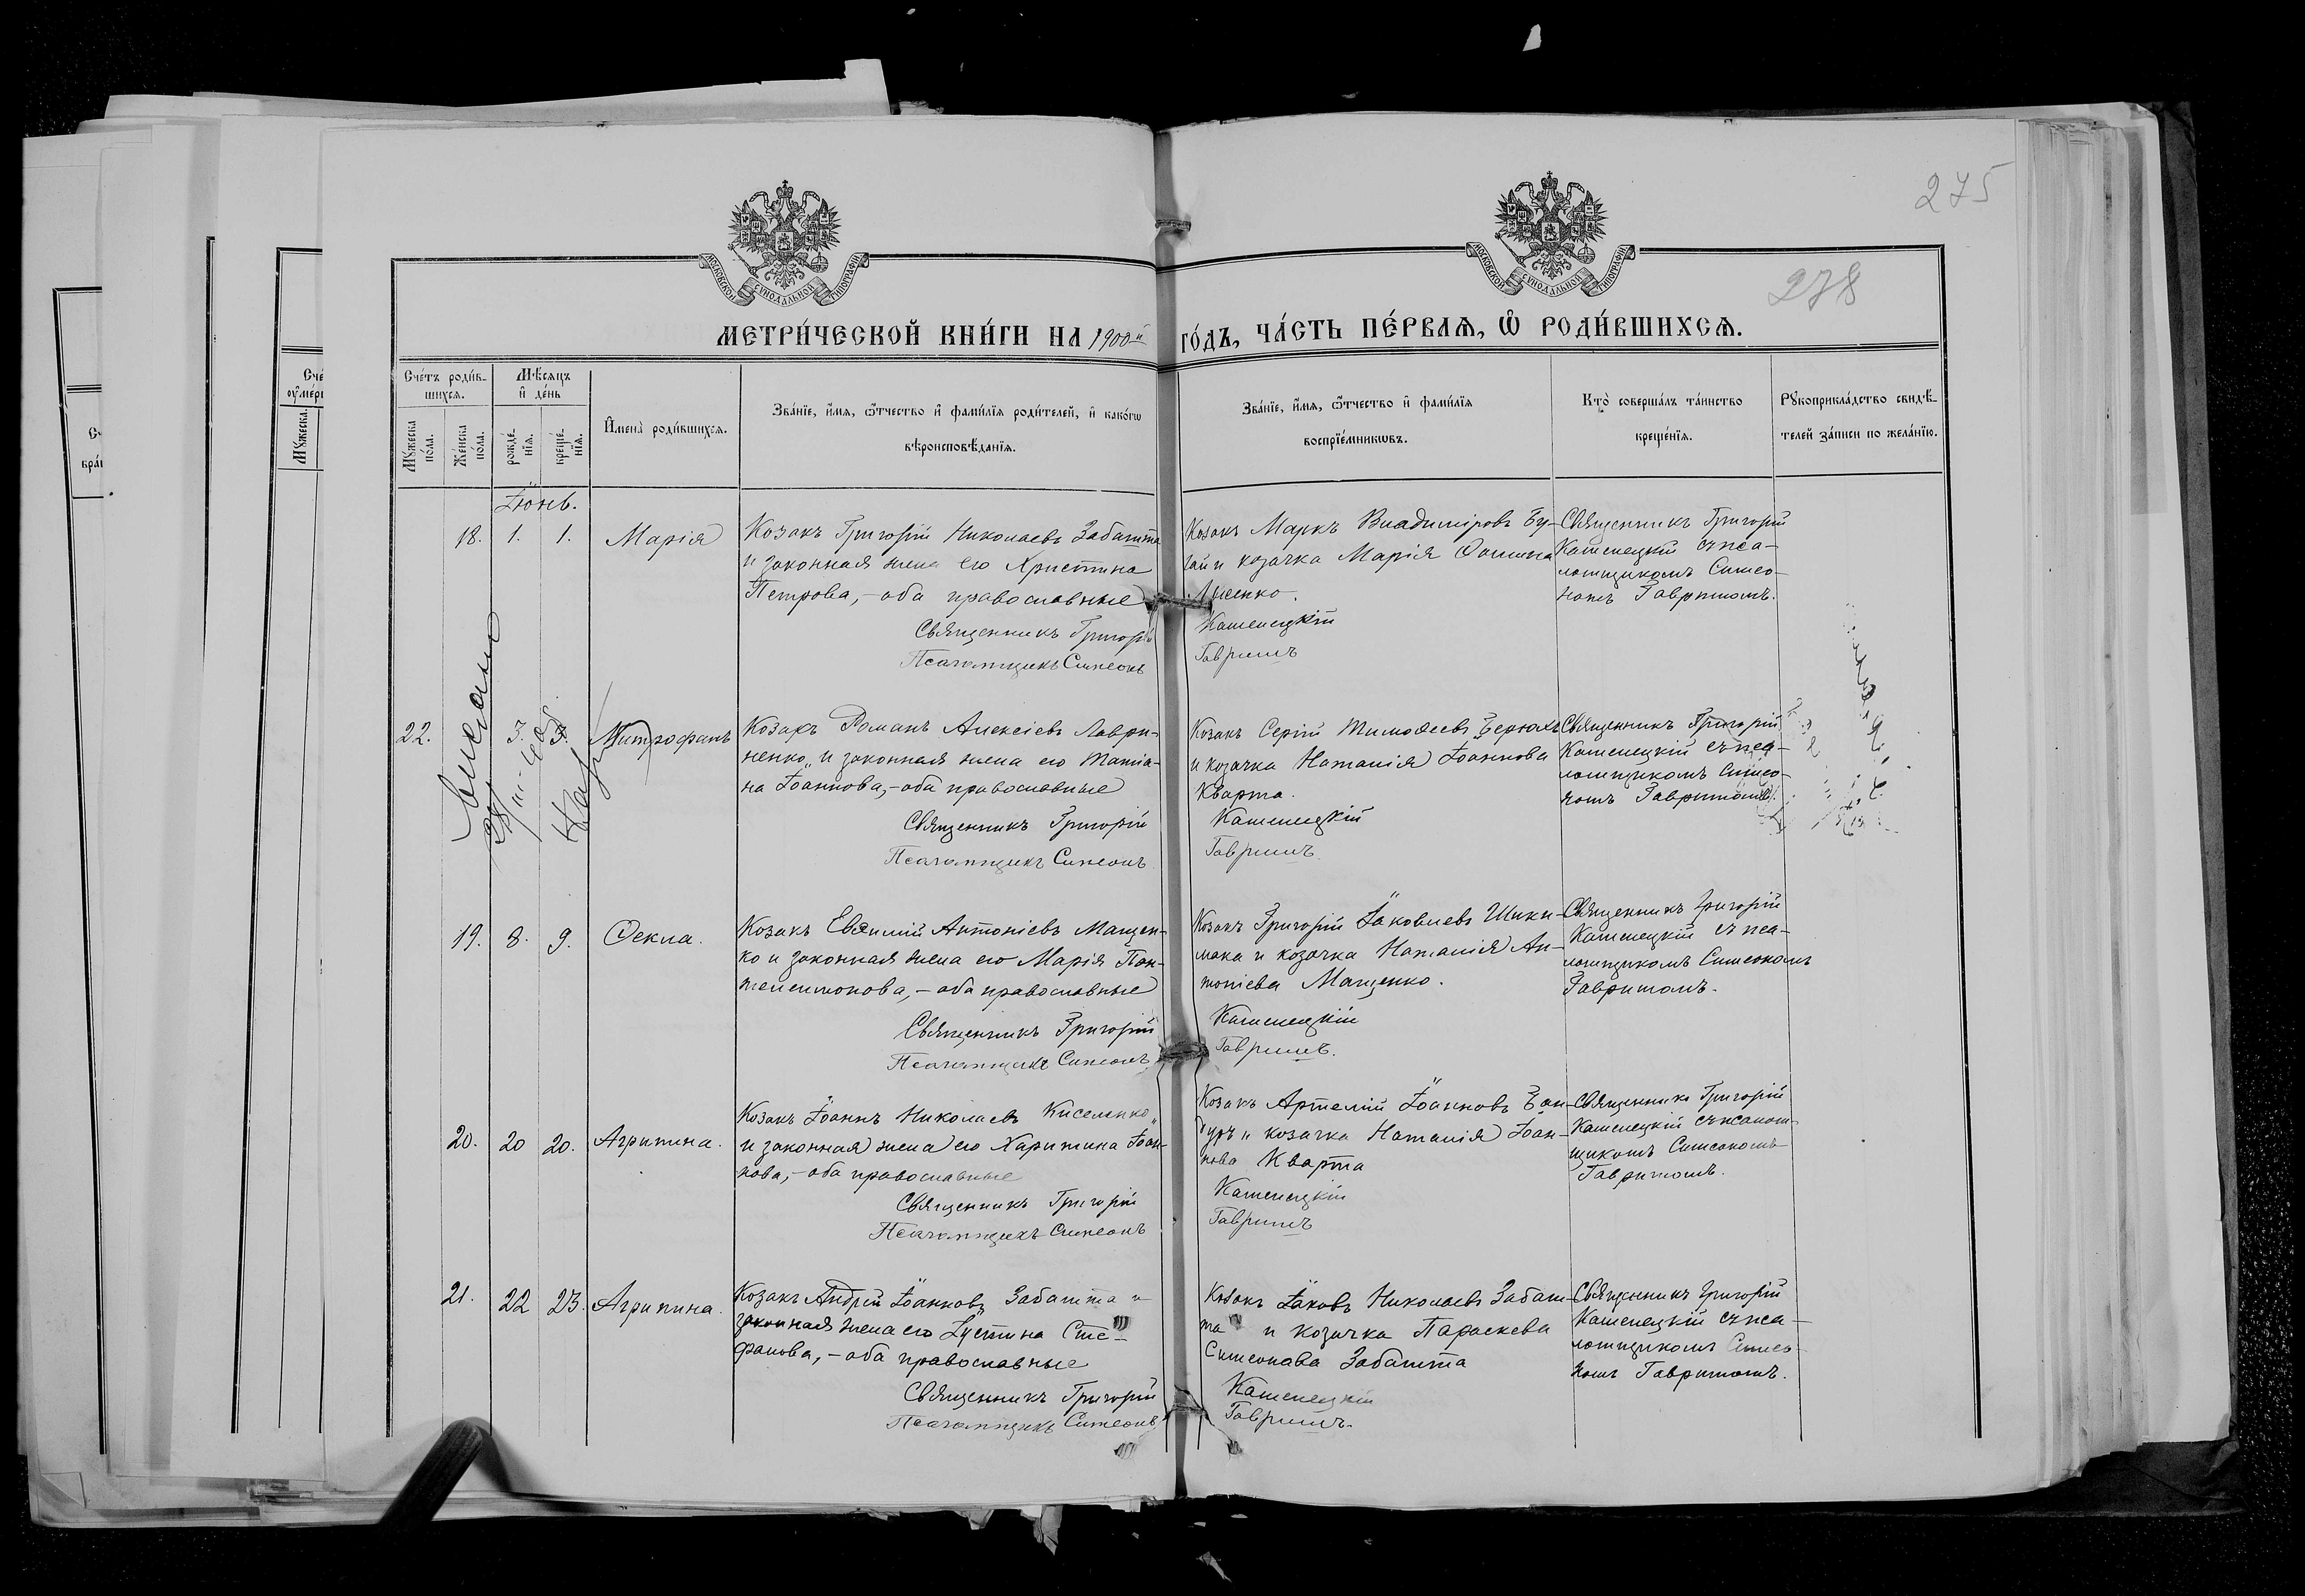 275
278
МОСКОВСКОЙ СУНОДАЛЬНОЙ ТИПОГРАФІИ
МОСКОВСКОЙ СУНОДАЛЬНОЙ ТИПОГРАФІИ
МЕТРИ́ЧЕСКОЙ КНИ́ГИ НА 1900й ГО́ДЪ, ЧА́СТЬ ПЕ́РВАѦ, Ѡ҆ РОДИ́ВШИХСѦ.
Сче́тъ роди́в-
шихсѧ.
Мѣ́сѧцъ
и҆ де́нь
Мꙋ́жеска
по́ла.
Же́нска
по́ла.
рожде́-
нїѧ.
креще́-
нїѧ.
И҆мена̀ роди́вшихсѧ.
Зва́нїе, и҆́мѧ, ѻ҆́тчество и҆ фами́лїѧ роди́телей, и҆ како́гѡ
вѣроисповѣ́данїѧ.
Зва́нїе, и҆́мѧ, ѻ҆́тчество и҆ фами́лїѧ
воспрїе́мникѡвъ.
Кто̀ соверша́лъ та́инство
креще́нїѧ.
Рꙋкоприкла́дство свидѣ́-
телей за́писи по жела́нїю.
Іюнь.
18. 1. 1. Марія
Козакъ Григорій Николаевъ Забашта
и законная жена его Христина
Петрова,- оба православные
Священникъ Григорій
Псаломщикъ Симеонъ
Козакъ Маркъ Владиміровъ Бу-
гай и козачка Марія Ѳомина
Лысенко.
Каменецкій
Гавришъ
Священникъ Григорій
Каменецкій съ пса-
ломщикомъ Симео-
номъ Гавришомъ.
22. 3. 3. Митрофанъ
Козакъ Романъ Алексіевъ Лаври-
ненко и законная жена его Татіа-
на Іоаннова,- оба православные
Священникъ Григорій
Псаломщикъ Симеонъ
Козакъ Сергій Тимоѳеевъ
и козачка Наталія Іоаннова
Кварта.
Каменецкій
Гавришъ
Священникъ Григорій
Каменецкій съ пса-
ломщикомъ Симео-
номъ Гавришомъ.
19. 8. 9. Ѳекла.
Козакъ Евѳимій Антоніевъ Мащен-
ко и законная жена его Марія Пан-
телеимонова,- оба православные
Священникъ Григорій
Псаломщикъ Симеонъ
Козакъ Григорій Іаковлевъ Шики-
мака и козачка Наталія Ан-
тоніева Мащенко.
Каменецкій
Гавришъ.
Священникъ Григорій
Каменецкій съ пса-
ломщикомъ Симеономъ
Гавришомъ.
20. 20 20. Агрипина.
Козакъ Іоаннъ Николаевъ Киселенко
и законная жена его Харитина Іоан-
нова,- оба православные
Священникъ Григорій
Псаломщикъ Симеонъ
Козакъ Артемій Іоанновъ Бан-
дуръ и козачка Наталія Іоан-
нова Кварта
Каменецкій
Гавришъ
Священникъ Григорій
Каменецкій съ псалом-
щикомъ Симеономъ
Гавришомъ.
21. 22 23. Агрипина.
Козакъ Андрій Іоанновъ Забашта и
законная жена его Іустина Сте-
фанова,- оба православные
Священникъ Григорій
Псаломщикъ Симеонъ
Козакъ Іаковъ Николаевъ Забаш-
та и козачка Параскева
Симеонава Забашта
Каменецкій
Гавришъ.
Священникъ Григорій
Каменецкій съ пса-
ломщикомъ Симео-
номъ Гавришомъ.